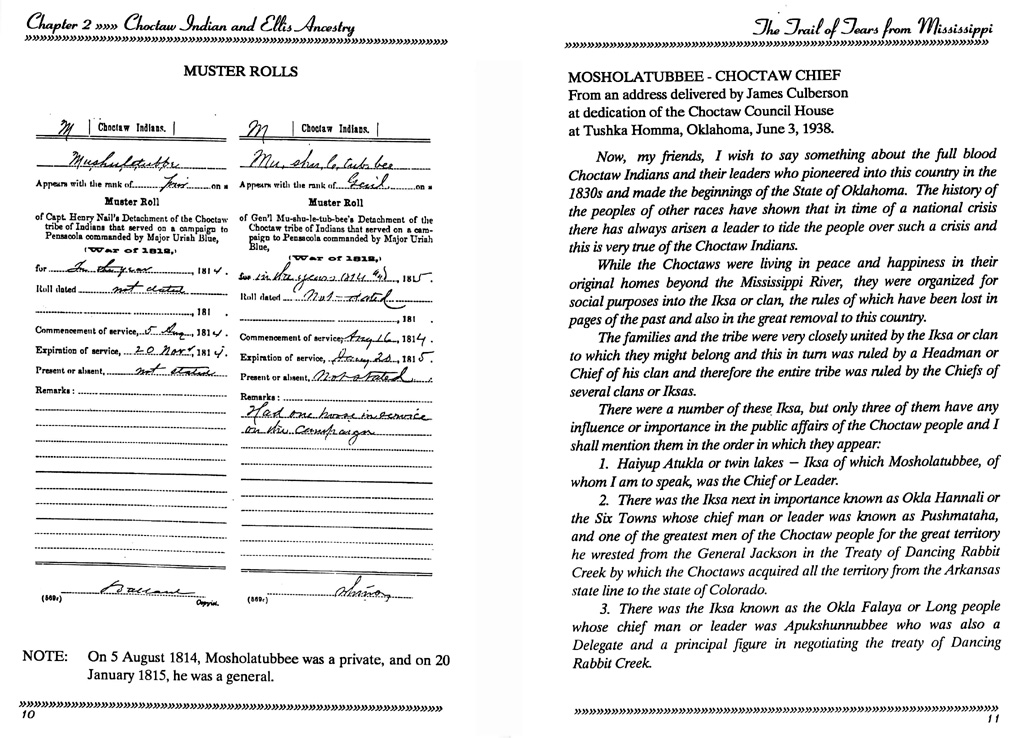 Chapter 2 »»» Choctaw Indian and Ellis Ancestry
MUSTER ROLLS
M | Choctaw Indians. |
Mushulatubbe
Appears with the rank of Priv on a
Muster Roll
of Capt. Henry Nail's Detachment of the Choctaw
tribe of Indians that served on a campaign to
Pensacola commanded by Major Uriah Blue,
(War of 1812,)
for In the year, 1814.
Roll dated not dated
, 181 .
Commencement of service, 5 Aug, 1814.
Expiration of service, 20 Novr, 1814.
Present or absent, not stated
Remarks:
(569r)
Copyist.
M | Choctaw Indians. |
Mu, shu, la, tub, bee
Appears with the rank of Genl. on a
Muster Roll
of Gen'l Mu-shu-le-tub-bee's Detachment of the
Choctaw tribe of Indians that served on a cam-
paign to Pensacola commanded by Major Uriah
Blue,
(War of 1812,)
for in the years 1814 and, 1815.
Roll dated Not-stated
, 181 .
Commencement of service, 1814.
Expiration of service, 1815.
Present or absent, Not stated
Remarks:
Had one horse in service
on the campaign
(569r)
NOTE: On 5 August 1814, Mosholatubbee was a private, and on 20
January 1815, he was a general.
10
The Trail of Tears from Mississippi
MOSHOLATUBBEE - CHOCTAW CHIEF
From an address delivered by James Culberson
at dedication of the Choctaw Council House
at Tushka Homma, Oklahoma, June 3, 1938.
Now, my friends, I wish to say something about the full blood
Choctaw Indians and their leaders who pioneered into this country in the
1830s and made the beginnings of the State of Oklahoma. The history of
the peoples of other races have shown that in time of a national crisis
there has always arisen a leader to tide the people over such a crisis and
this is very true of the Choctaw Indians.
While the Choctaws were living in peace and happiness in their
original homes beyond the Mississippi River, they were organized for
social purposes into the Iksa or clan, the rules of which have been lost in
pages of the past and also in the great removal to this country.
The families and the tribe were very closely united by the Iksa or clan
to which they might belong and this in turn was ruled by a Headman or
Chief of his clan and therefore the entire tribe was ruled by the Chiefs of
several clans or Iksas.
There were a number of these Iksa, but only three of them have any
influence or importance in the public affairs of the Choctaw people and I
shall mention them in the order in which they appear:
1. Haiyup Atukla or twin lakes – Iksa of which Mosholatubbee, of
whom I am to speak, was the Chief or Leader.
2. There was the Iksa next in importance known as Okla Hannali or
the Six Towns whose chief man or leader was known as Pushmataha,
and one of the greatest men of the Choctaw people for the great territory
he wrested from the General Jackson in the Treaty of Dancing Rabbit
Creek by which the Choctaws acquired all the territory from the Arkansas
state line to the state of Colorado.
3. There was the Iksa known as the Okla Falaya or Long people
whose chief man or leader was Apukshunnubbee who was also a
Delegate and a principal figure in negotiating the treaty of Dancing
Rabbit Creek.
11